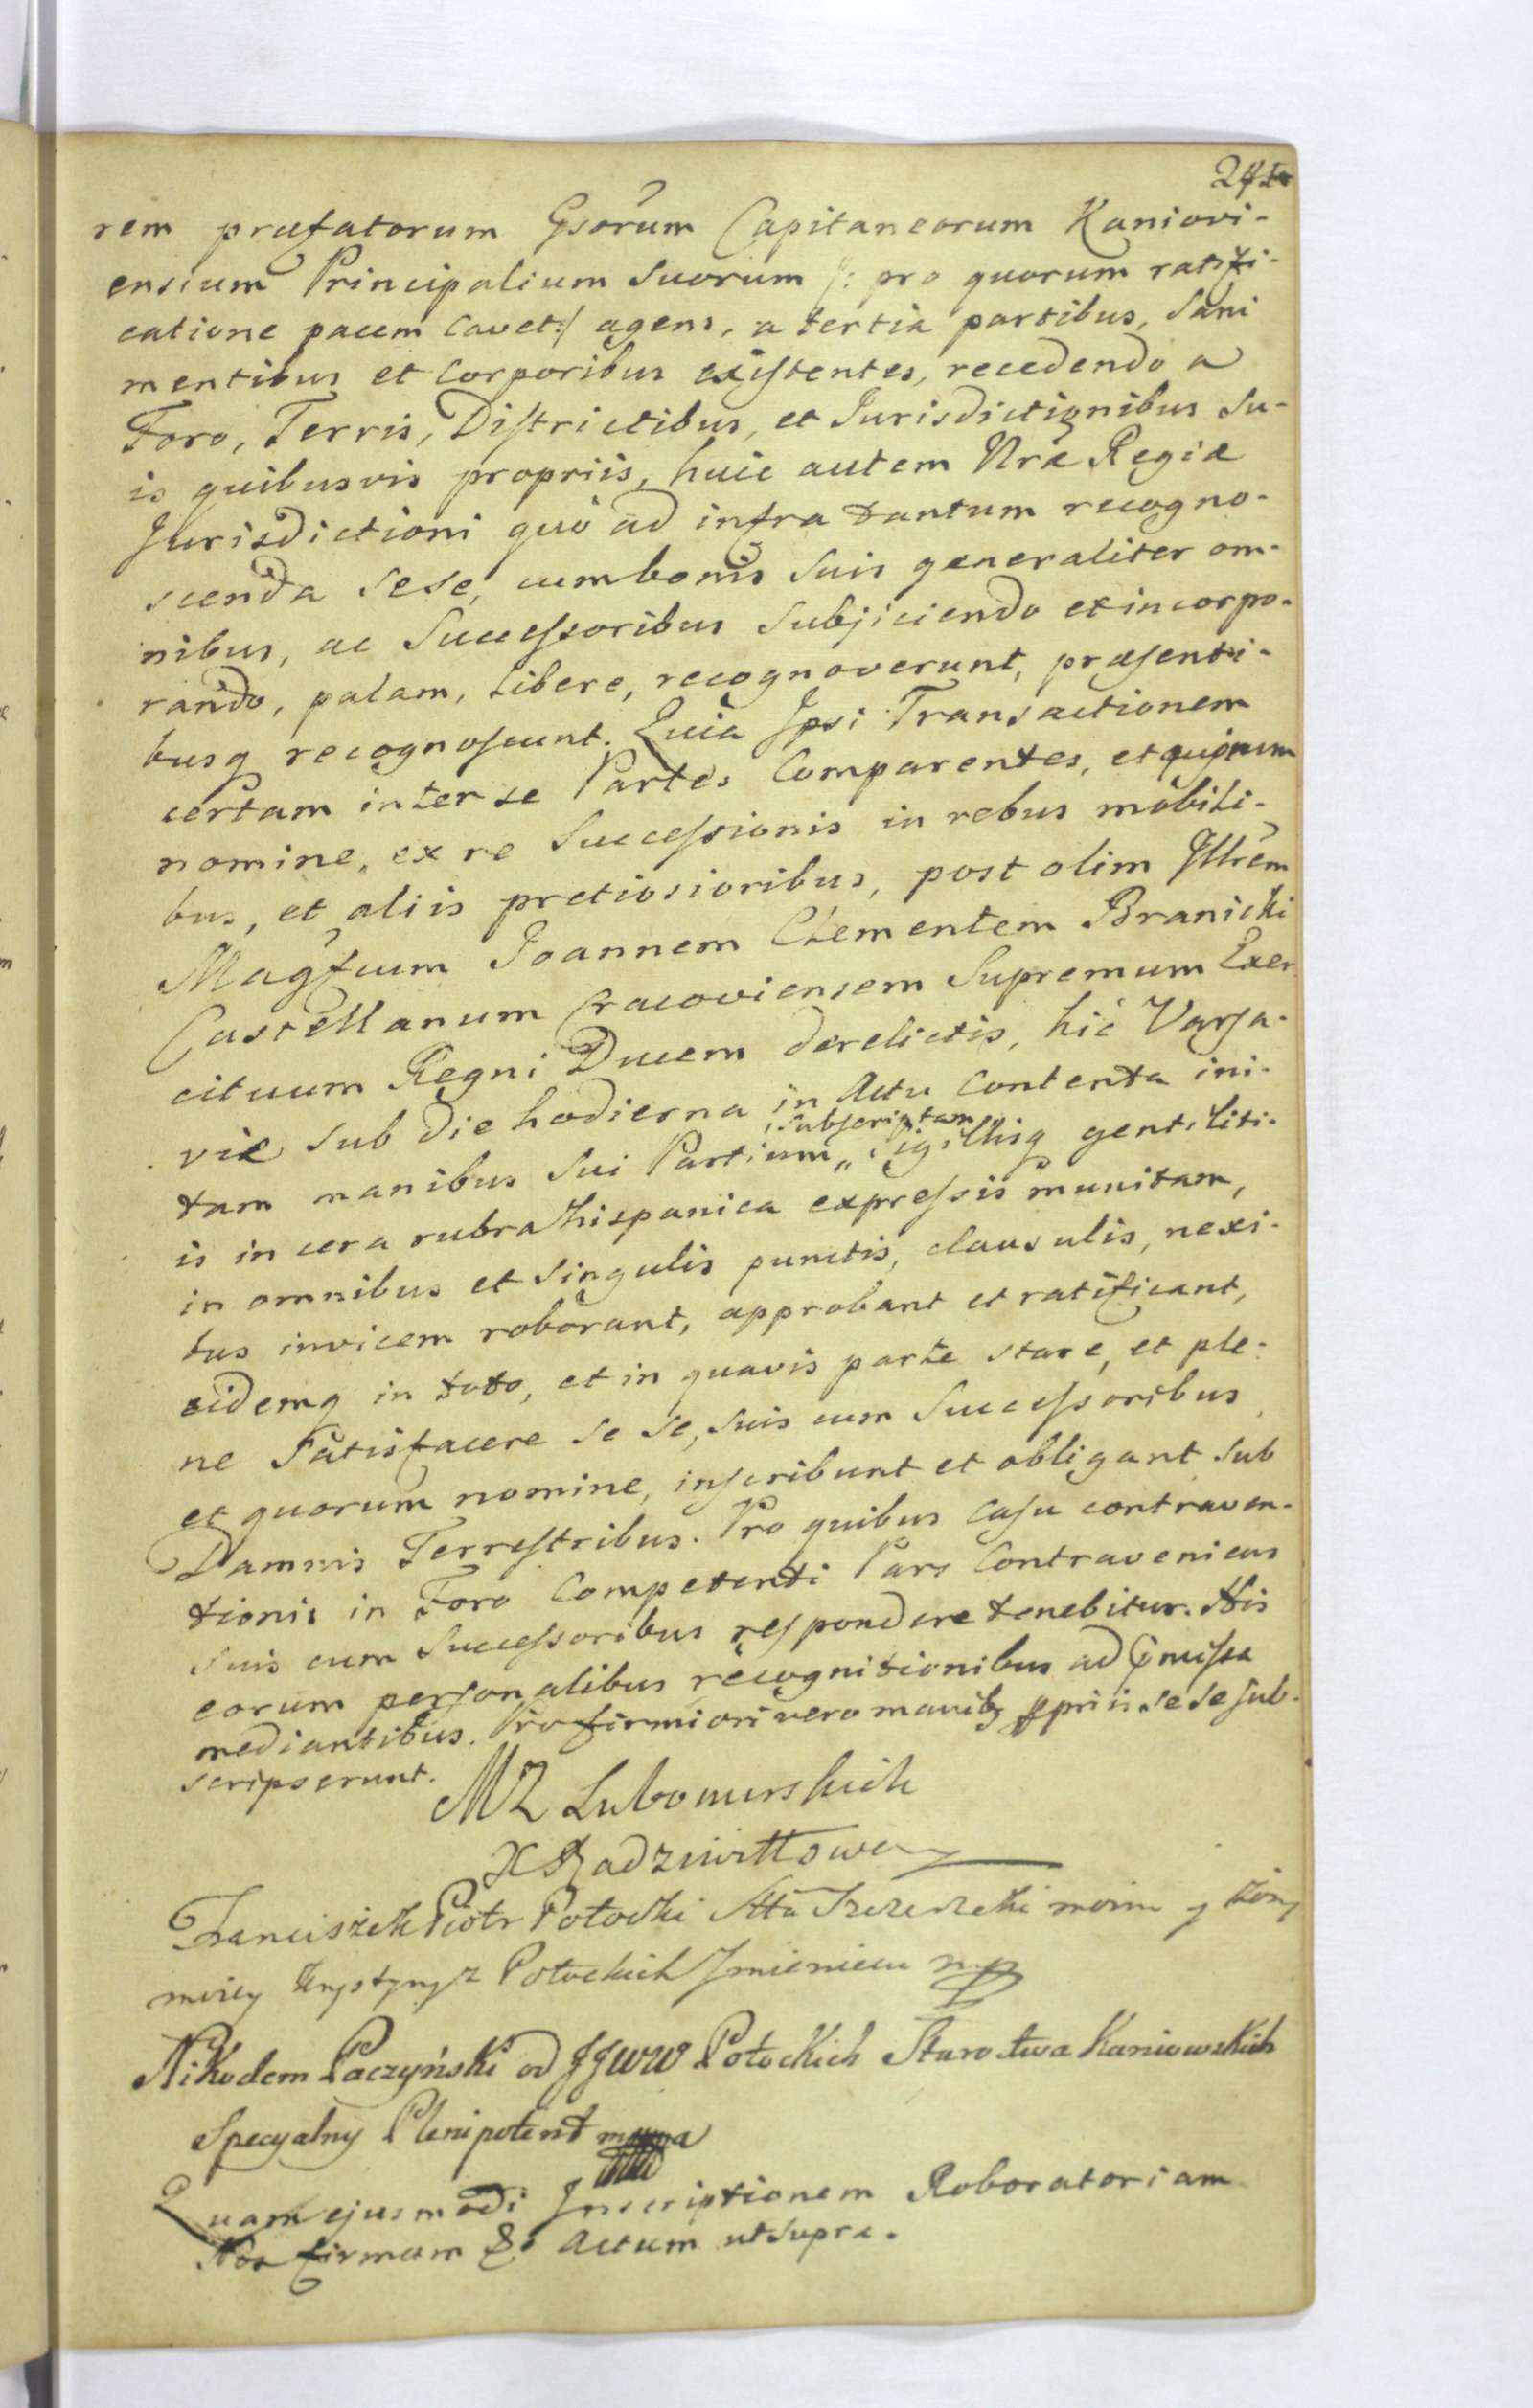 rem præfatorum Gsorum Capitaneorum Kaniovi-
ensium Principalium Suorum /: pro quorum ratifi-
catione pacem Cavet :/ agens, a tertia partibus, Sani
mentibus et Corporibus existentes, recedendo a
Foro, Terris, Districtibus, et Jurisdictionibus Su-
is quibusvis propriis, huic autem Nræ Regiæ
Jurisdictioni quò ad infra tantum recogno-
scenda Sese, cum bonis Suis generaliter om-
nibus, ac Successoribus Subjiciendo et incorpo-
rando, palam, Libere, recognoverunt, præsenti-
busq recognoscunt. Quia Ipsi Transactionem
certam inter se Partes Comparentes, et quorum
nomine, ex re Successionis in rebus mobili-
bus, et aliis pretiosioribus, post olim Illrem
Magfcum Joannem Clementem Branicki
Castellanum Cracoviensem Supremum Exer
cituum Regni Ducem derelictis, hic Varsa-
viæ sub die hodierna in Actu Contenta ini-
tam manibus Sui Partium subscriptam Sigillisq gentiliti-
is in cera rubra hispanica expressis munitam,
in omnibus et Singulis punctis, clausulis, nexi-
bus invicem roborant, approbant et ratificant,
eidemq in toto, et in quavis parte stare, et ple-
ne Satisfacere se se, suis cum Successoribus,
et quorum nomine, inscribunt et obligant sub
Damnis Terrestribus. Pro quibus Casu contraven-
tionis in Foro Competenti Pars Contraveniens
Suis cum Successoribus respondere tenebitur. His
eorum personalibus recognitionibus ad pmissa
mediantibus. Pro firmiori vero manibq ppriis se se sub-
scripserunt.
MZ Lubomirskich
X Radziwiłłowa
Franciszek Piotr Potocki Stta Szczerzecki moim y żony
moiey Krystyny z Potockich Jmieniem mp
Nikodem Paczyński od JJWW Potockich Starostwa Kaniowskich
Specyalny Plenipotent
Quam ejusmodi Inscriptionem Roboratoriam
Nos firmam &c Actum ut Supra.